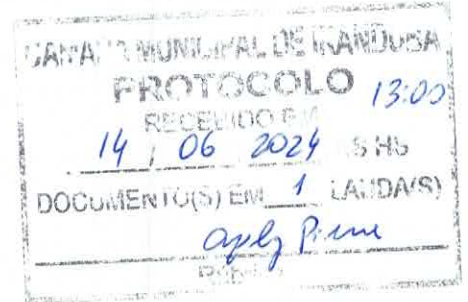 CÂMARA MUNICIPAL DE IRANDUBA
PROTOCOLO
13:00
RECEBIDO EM
14 / 06 2024 ÀS HS
DOCUMENTO(S) EM 1 LAUDA(S)